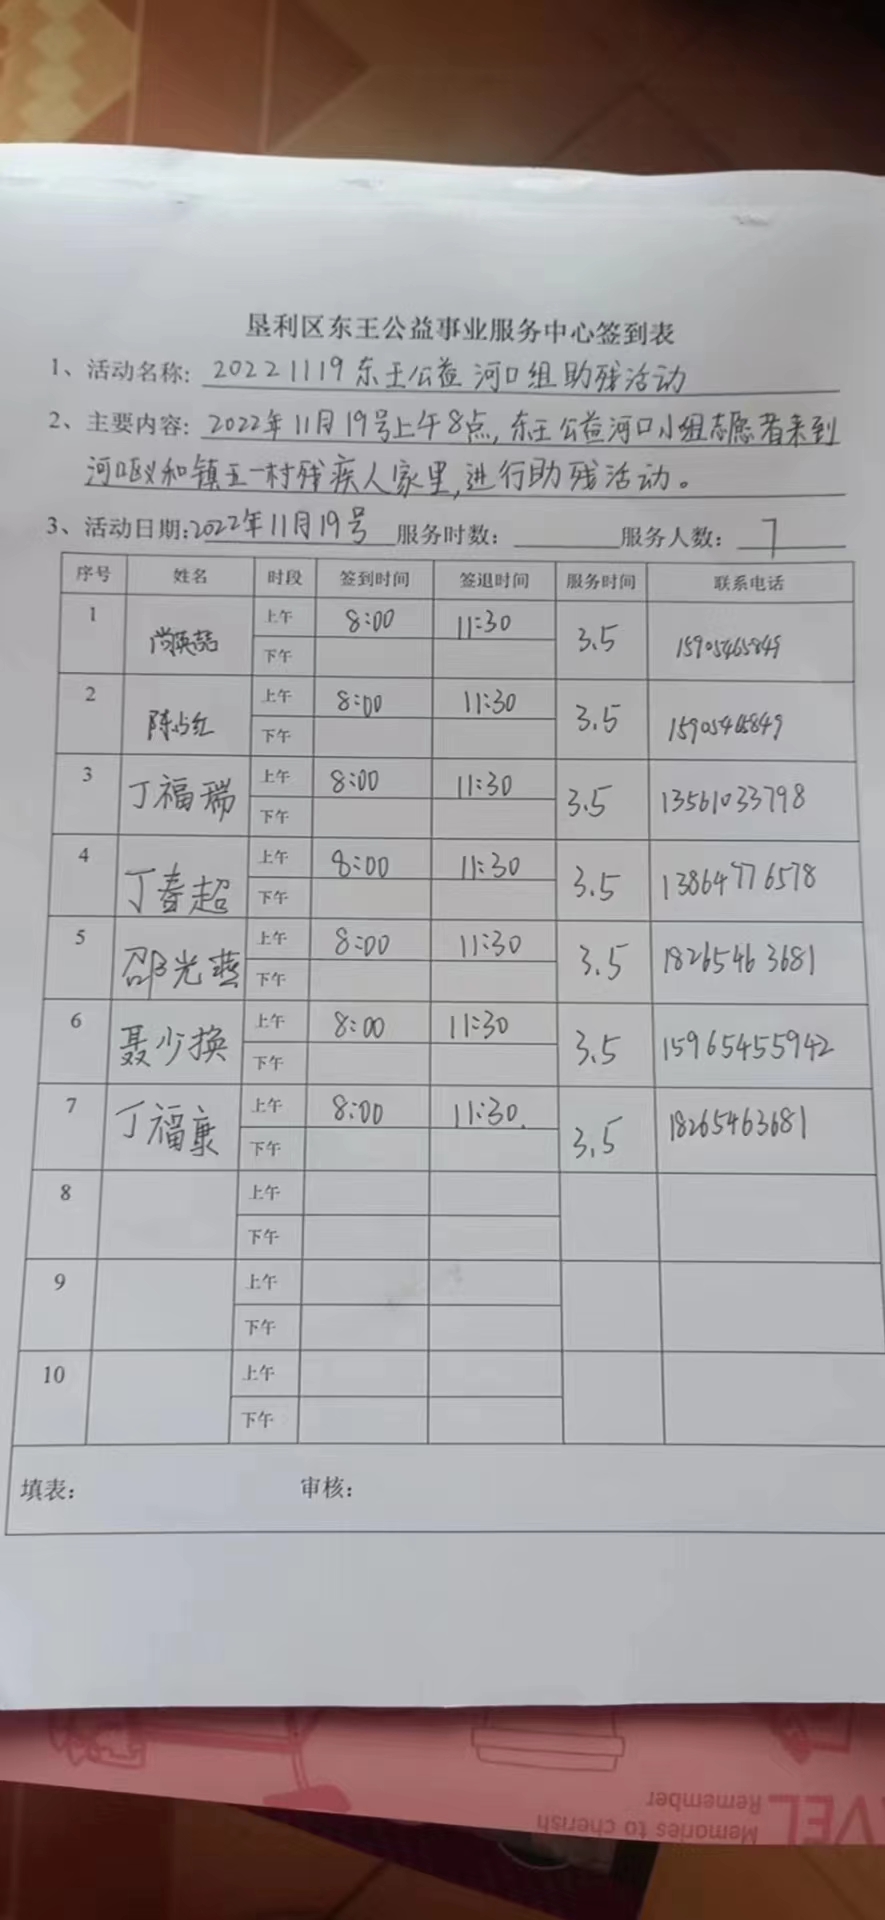 垦利区东王公益事业服务中心签到表
1、活动名称: 20221119东王公益河口组助残活动
2、主要内容: 2022年11月19号上午8点,东王公益河口小组志愿者来到
河口区义和镇五一村残疾人家里,进行助残活动。
3、活动日期:2022年11月19号 服务时数: 服务人数: 7
序号 姓名 时段 签到时间 签退时间 服务时间 联系电话
1 尚英喆 上午 8:00 11:30 3.5 15905465849
下午
2 陈占红 上午 8:00 11:30 3.5 15905465849
下午
3 丁福瑞 上午 8:00 11:30 3.5 13561033798
下午
4 丁春超 上午 8:00 11:30 3.5 13864776578
下午
5 邵光燕 上午 8:00 11:30 3.5 18265463681
下午
6 聂少换 上午 8:00 11:30 3.5 15965455942
下午
7 丁福康 上午 8:00 11:30. 3.5 18265463681
下午
8 上午
下午
9 上午
下午
10 上午
下午
填表: 审核:
Remember
Memories to cherish
VEL